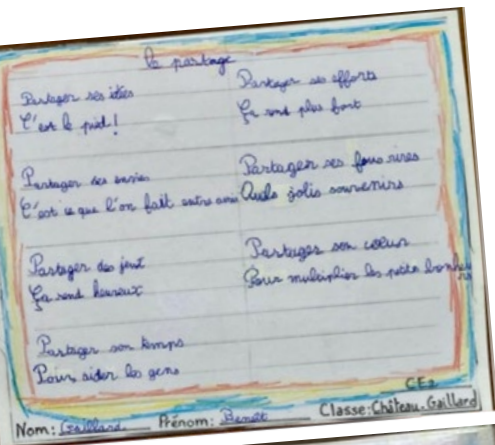 Le partage
Partager ses idées
C'est le pied!
Partager ses envies
C'est ce que l'on fait entre amis
Partager des jeux
Ça rend heureux
Partager son temps
Pour aider les gens
Partager ses efforts
Ça rend plus fort
Partager ses fous rires
Quels jolis souvenirs
Partager son cœur
Pour multiplier les petits bonheurs
CE2
Nom: Gaillard Prénom: Benoit Classe: Château.Gaillard